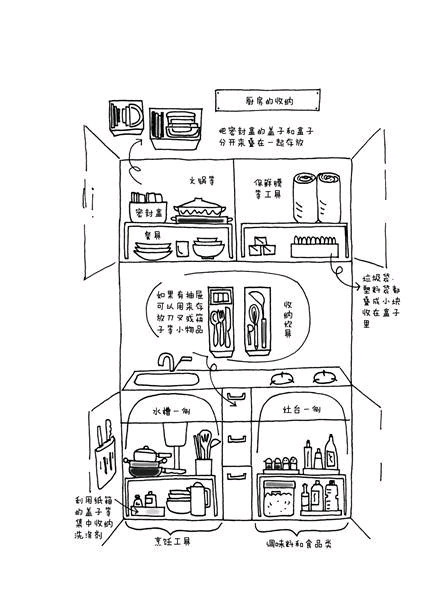 厨房的收纳
把密封盒的盖子和盒子
分开来叠在一起存放
火锅等
保鲜膜
等工具
密封盒
餐具
垃圾袋、
塑料袋都
叠成小块
收在盒子
里
如果有抽屉
可以用来存
放刀叉或筷
子等小物品
收纳
炊具
水槽一侧
灶台一侧
利用纸箱
的盖子等
集中收纳
洗涤剂
烹饪工具
调味料和食品类